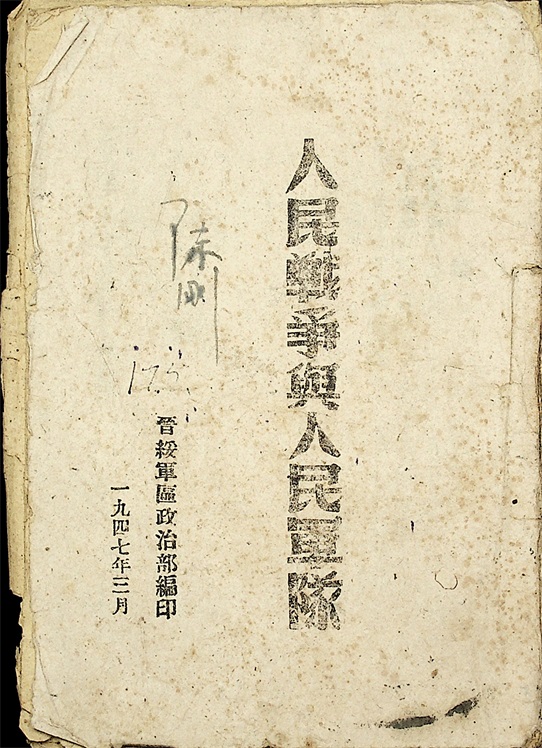 人民戰爭與人民軍隊
陈刚
175
晉綏軍區政治部編印
一九四七年三月